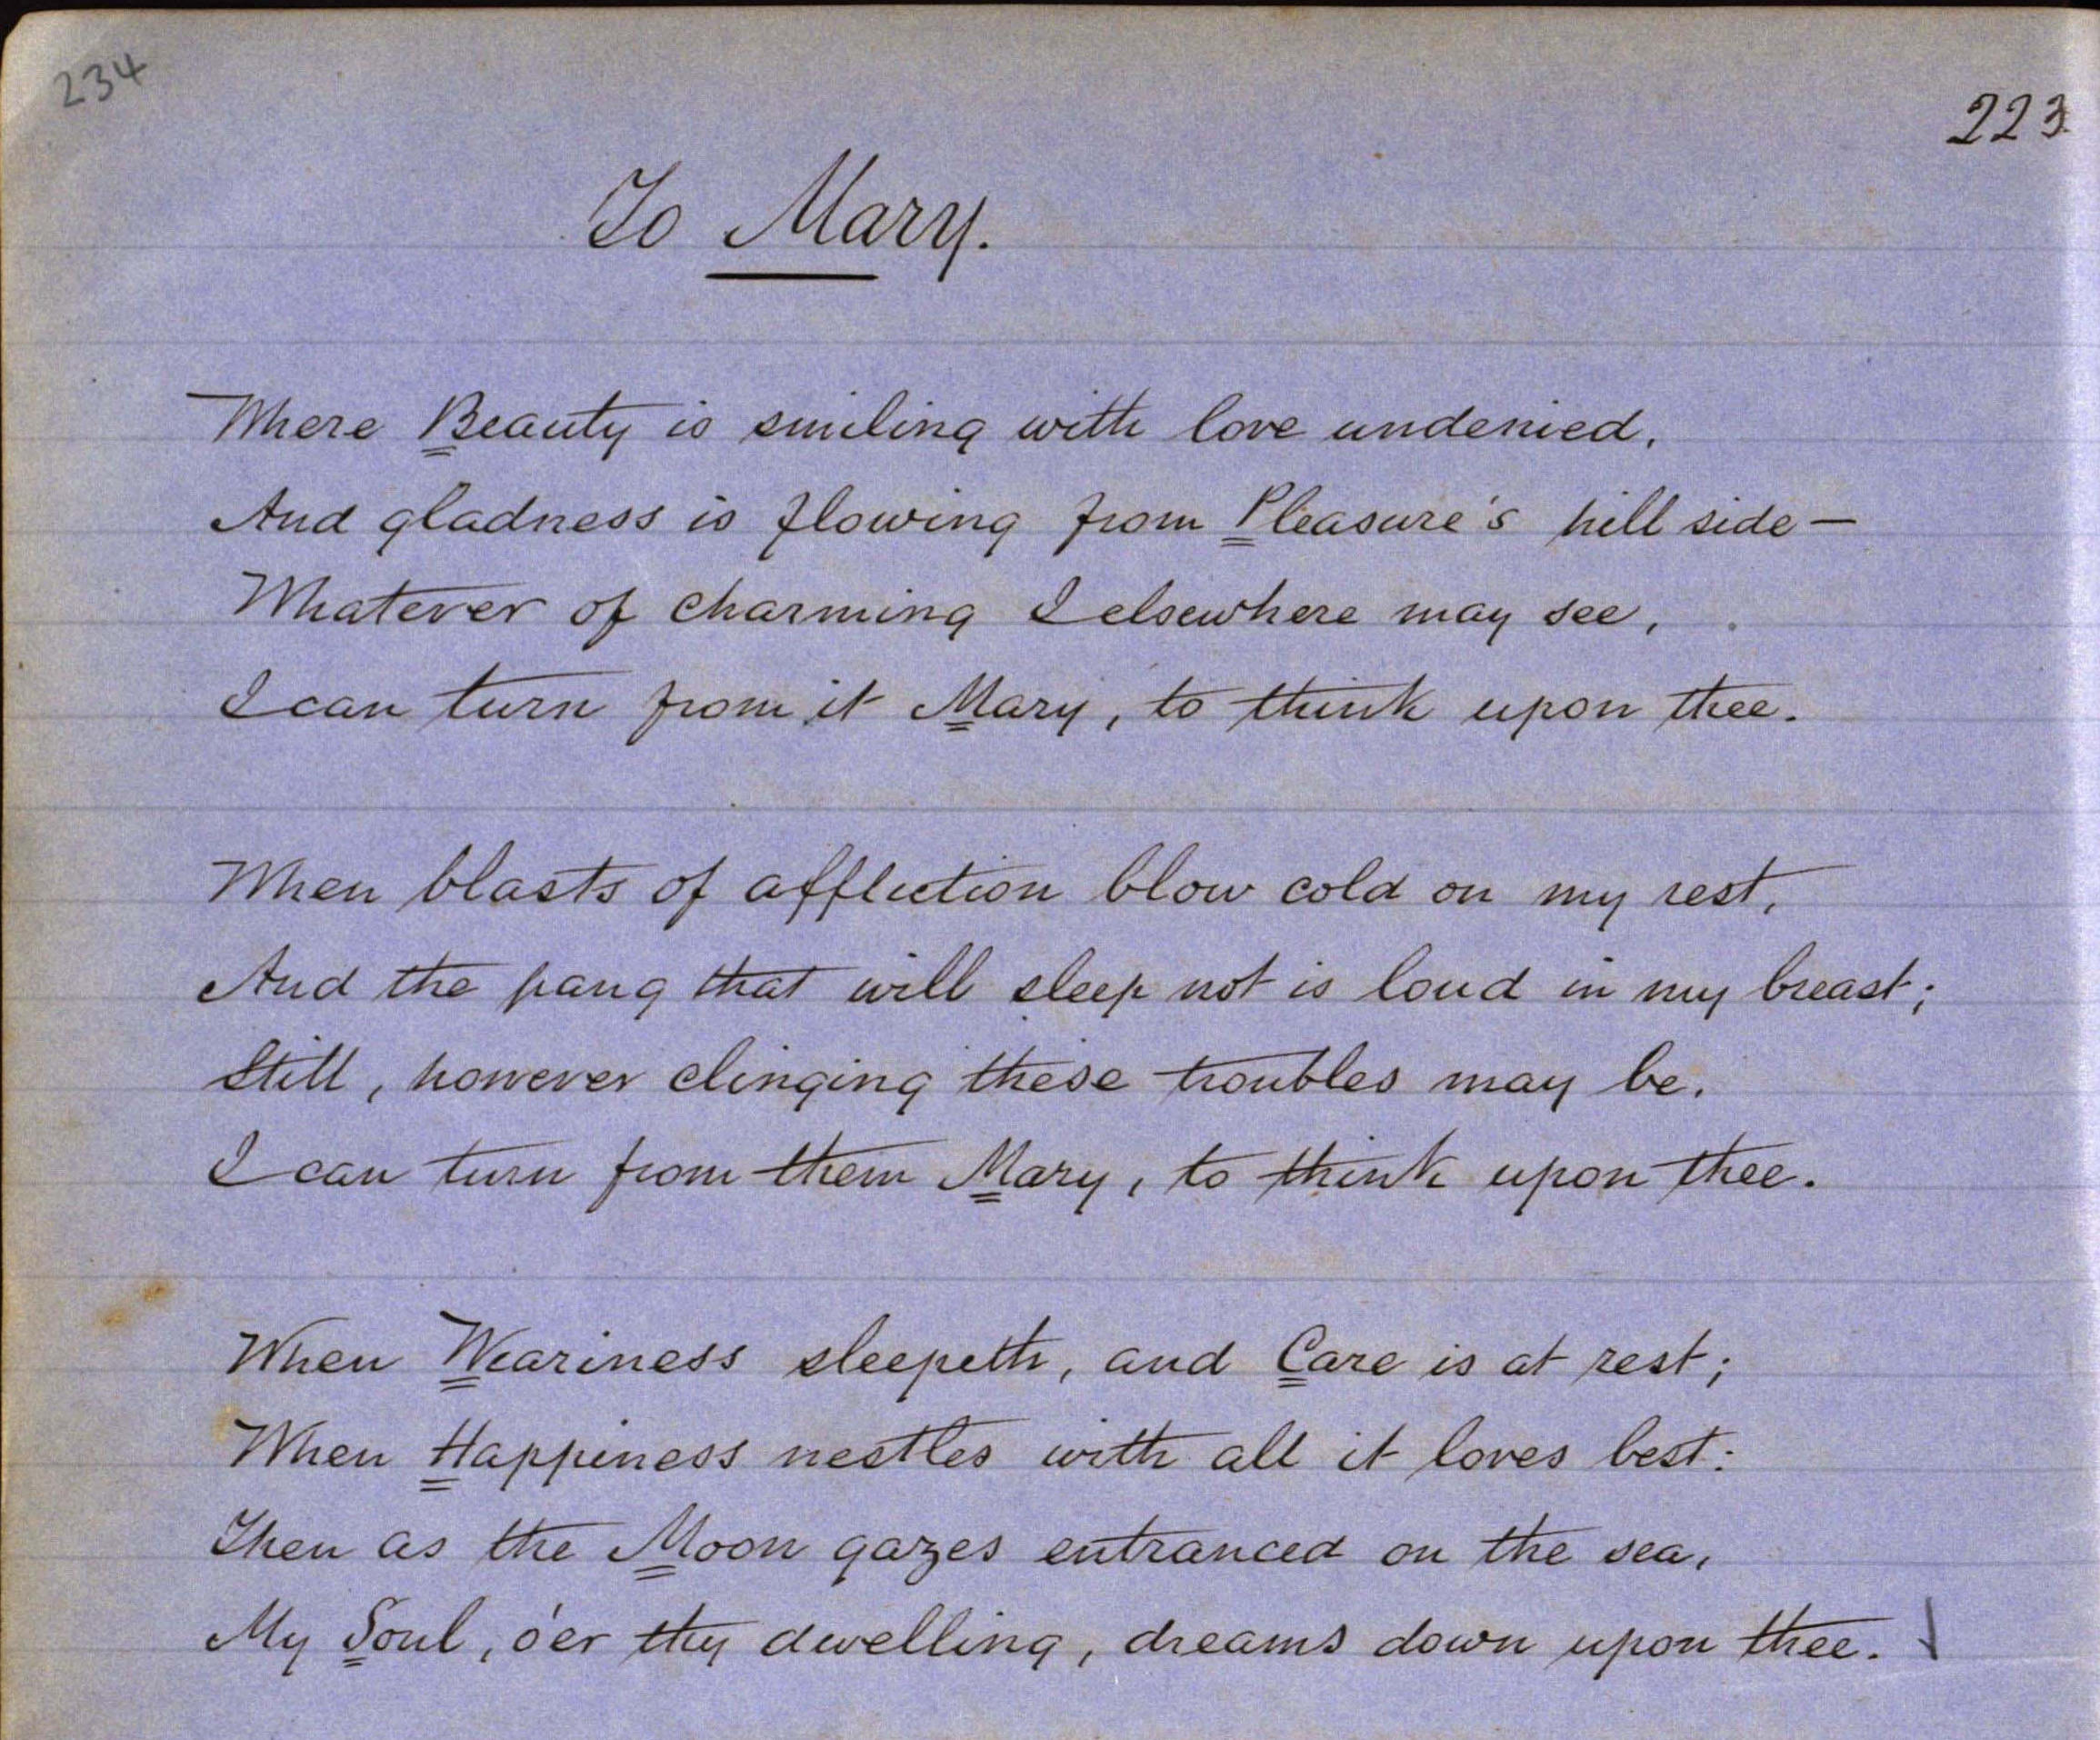 234
223
To Mary.
Where Beauty is smiling with love undenied,
And gladness is flowing from Pleasure's hill side—
Whatever of charming I elsewhere may see,
I can turn from it Mary, to think upon thee.
When blasts of affliction blow cold on my rest,
And the pang that will sleep not is loud in my breast;
Still, however clinging these troubles may be,
I can turn from them Mary, to think upon thee.
When Weariness sleepeth, and Care is at rest;
When Happiness nestles with all it loves best:
Then as the Moon gazes entranced on the sea,
My Soul, o'er thy dwelling, dreams down upon thee.